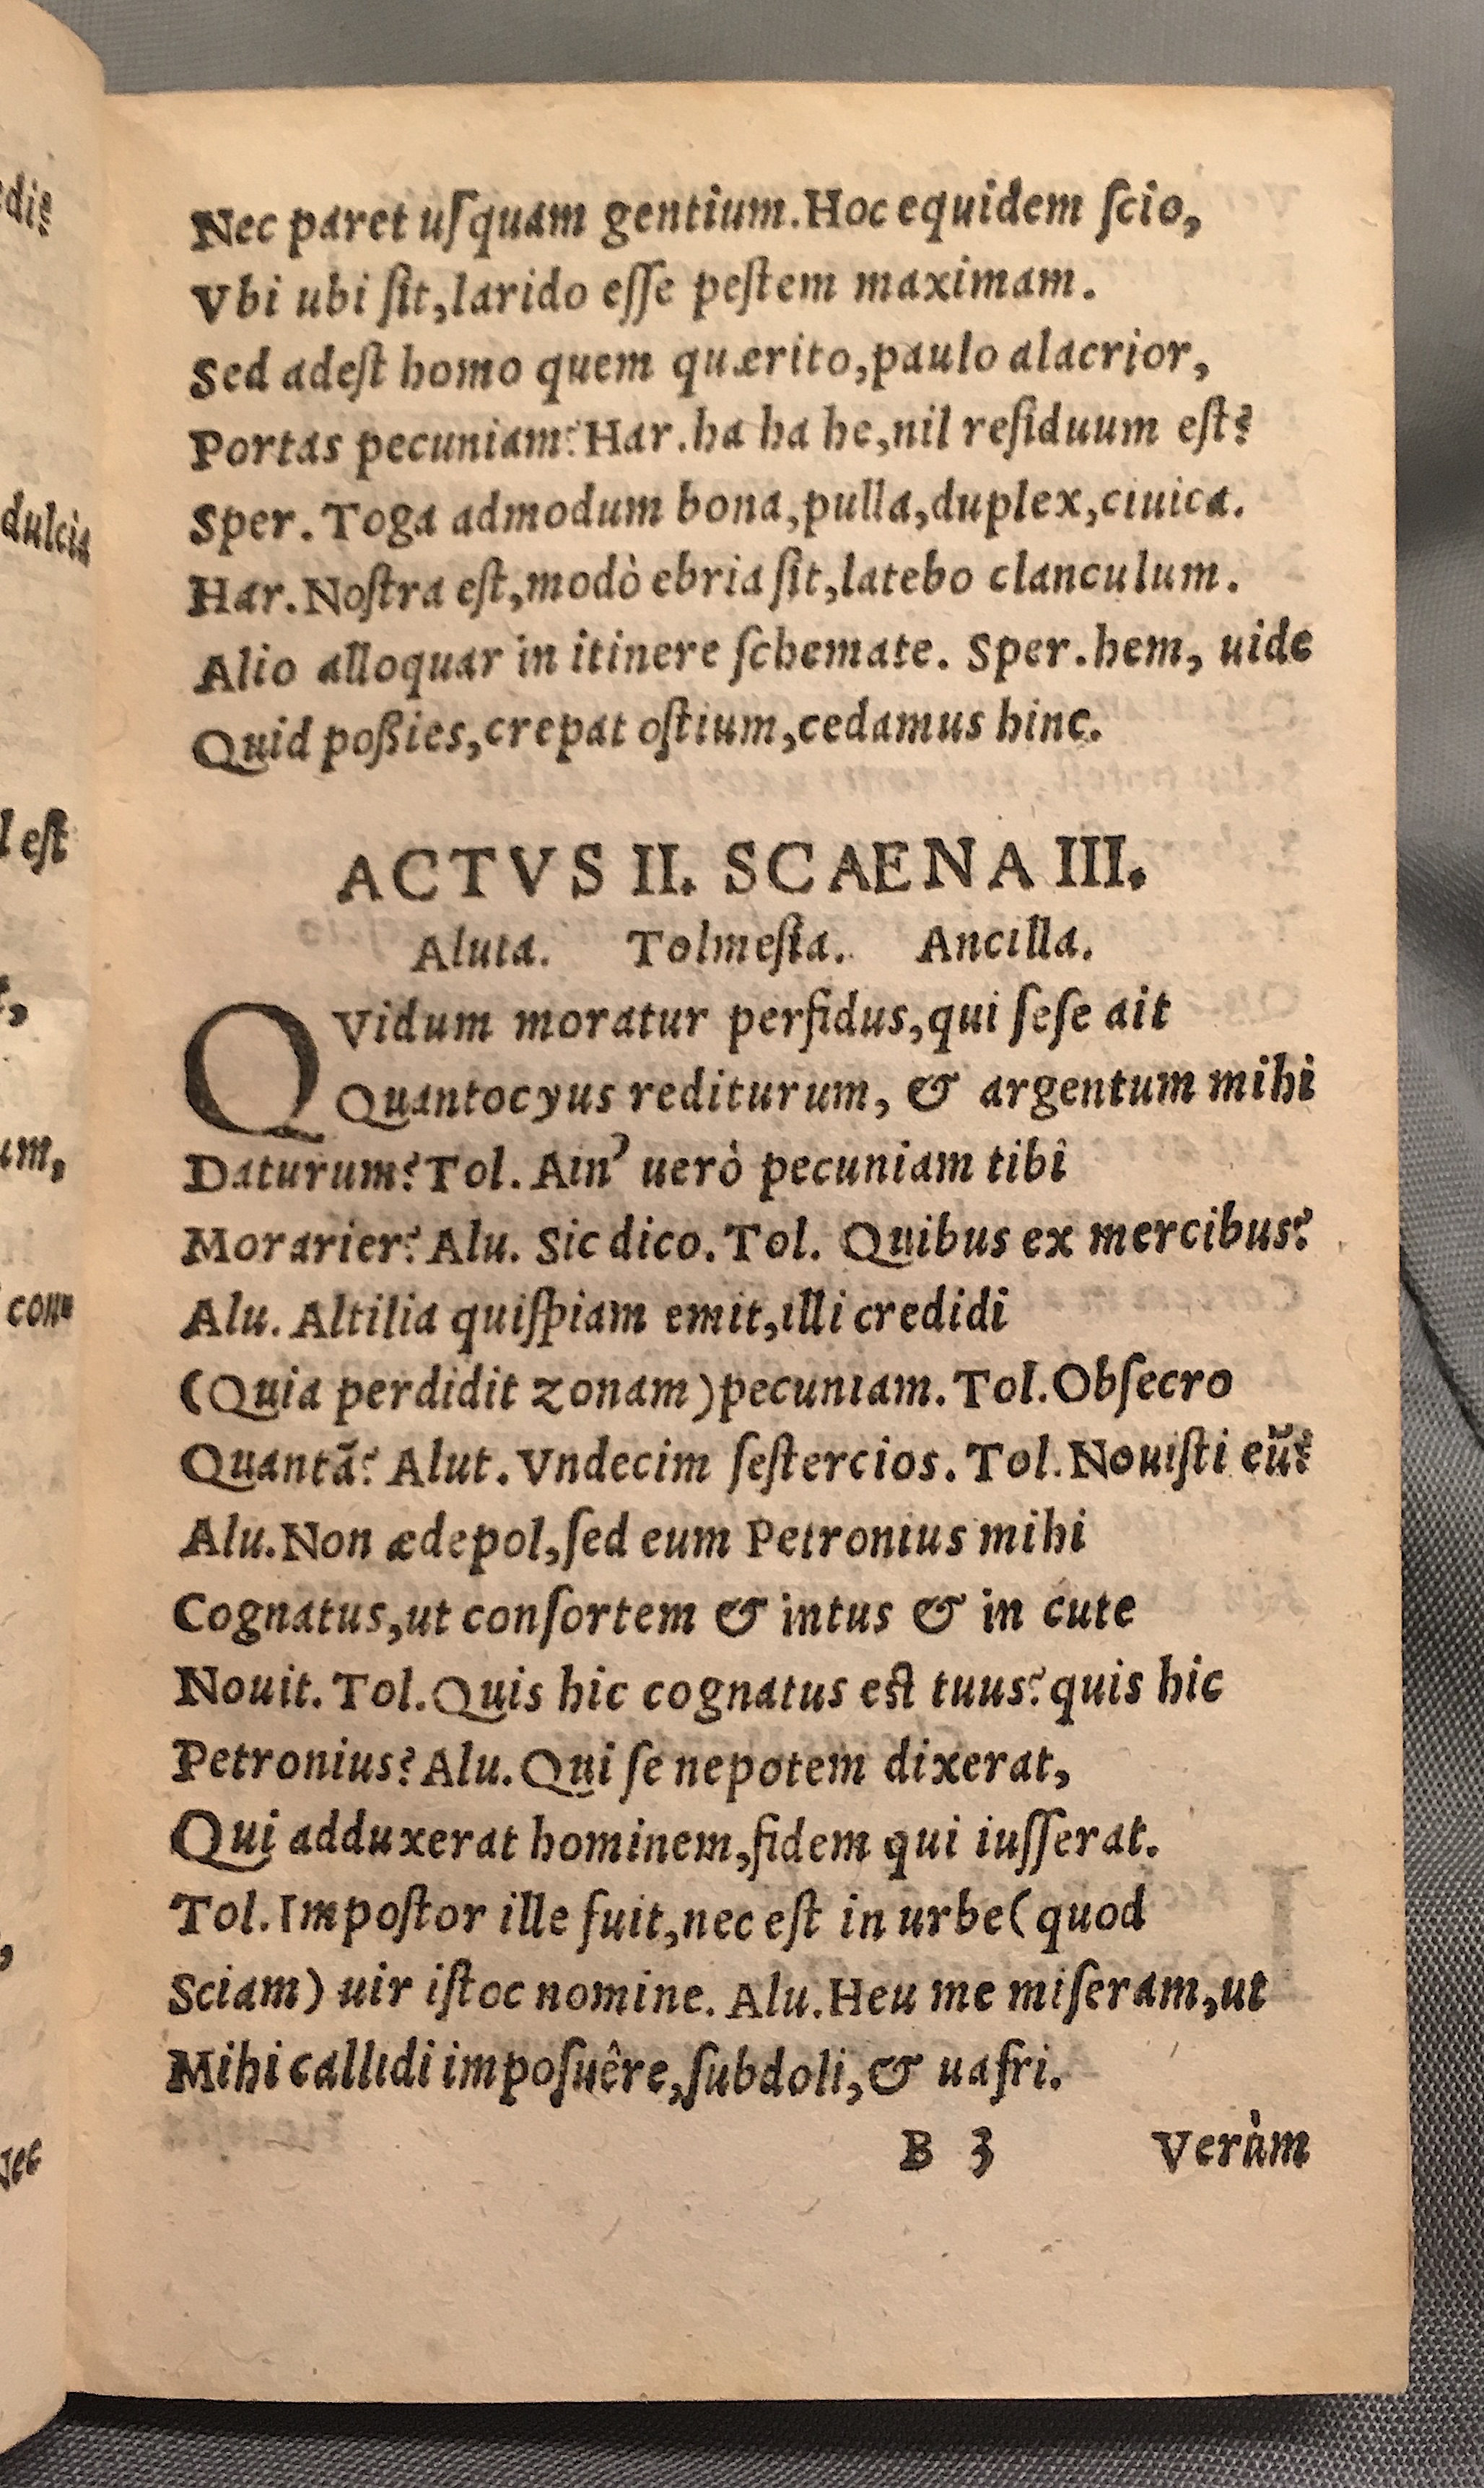 Nec paret uſquam gentium. Hoc equidem ſcio,
Vbi ubi ſit, larido eſſe peſtem maximam.
Sed adeſt homo quem quærito, paulo alacrior,
Portas pecuniam? Har. ha ha he, nil reſiduum eſt?
Sper. Toga admodum bona, pulla, duplex, ciuica.
Har. Noſtra eſt, modò ebria ſit, latebo clanculum.
Alio alloquar in itinere ſchemate. Sper. hem, uide
Quid poßies, crepat oſtium, cedamus hinc.
ACTVS II. SCAENA III.
Aluta. Tolmeſia. Ancilla.
QVidum moratur perfidus, qui ſeſe ait
Quantocyus rediturum, & argentum mihi
Daturum? Tol. Ain' uerò pecuniam tibî
Morarier? Alu. Sic dico. Tol. Quibus ex mercibus?
Alu. Altilia quiſpiam emit, illi credidi
(Quia perdidit zonam) pecuniam. Tol. Obſecro
Quantã? Alut. Vndecim ſeſtercios. Tol. Nouiſti eũ?
Alu. Non ædepol, ſed eum Petronius mihi
Cognatus, ut conſortem & intus & in cute
Nouit. Tol. Quis hic cognatus eſt tuus? quis hic
Petronius? Alu. Qui ſe nepotem dixerat,
Qui adduxerat hominem, fidem qui iuſſerat.
Tol. Impoſtor ille fuit, nec eſt in urbe (quod
Sciam) uir iſtoc nomine. Alu. Heu me miſeram, ut
Mihi callidi impoſuêre, ſubdoli, & uafri.
B 3 Verùm